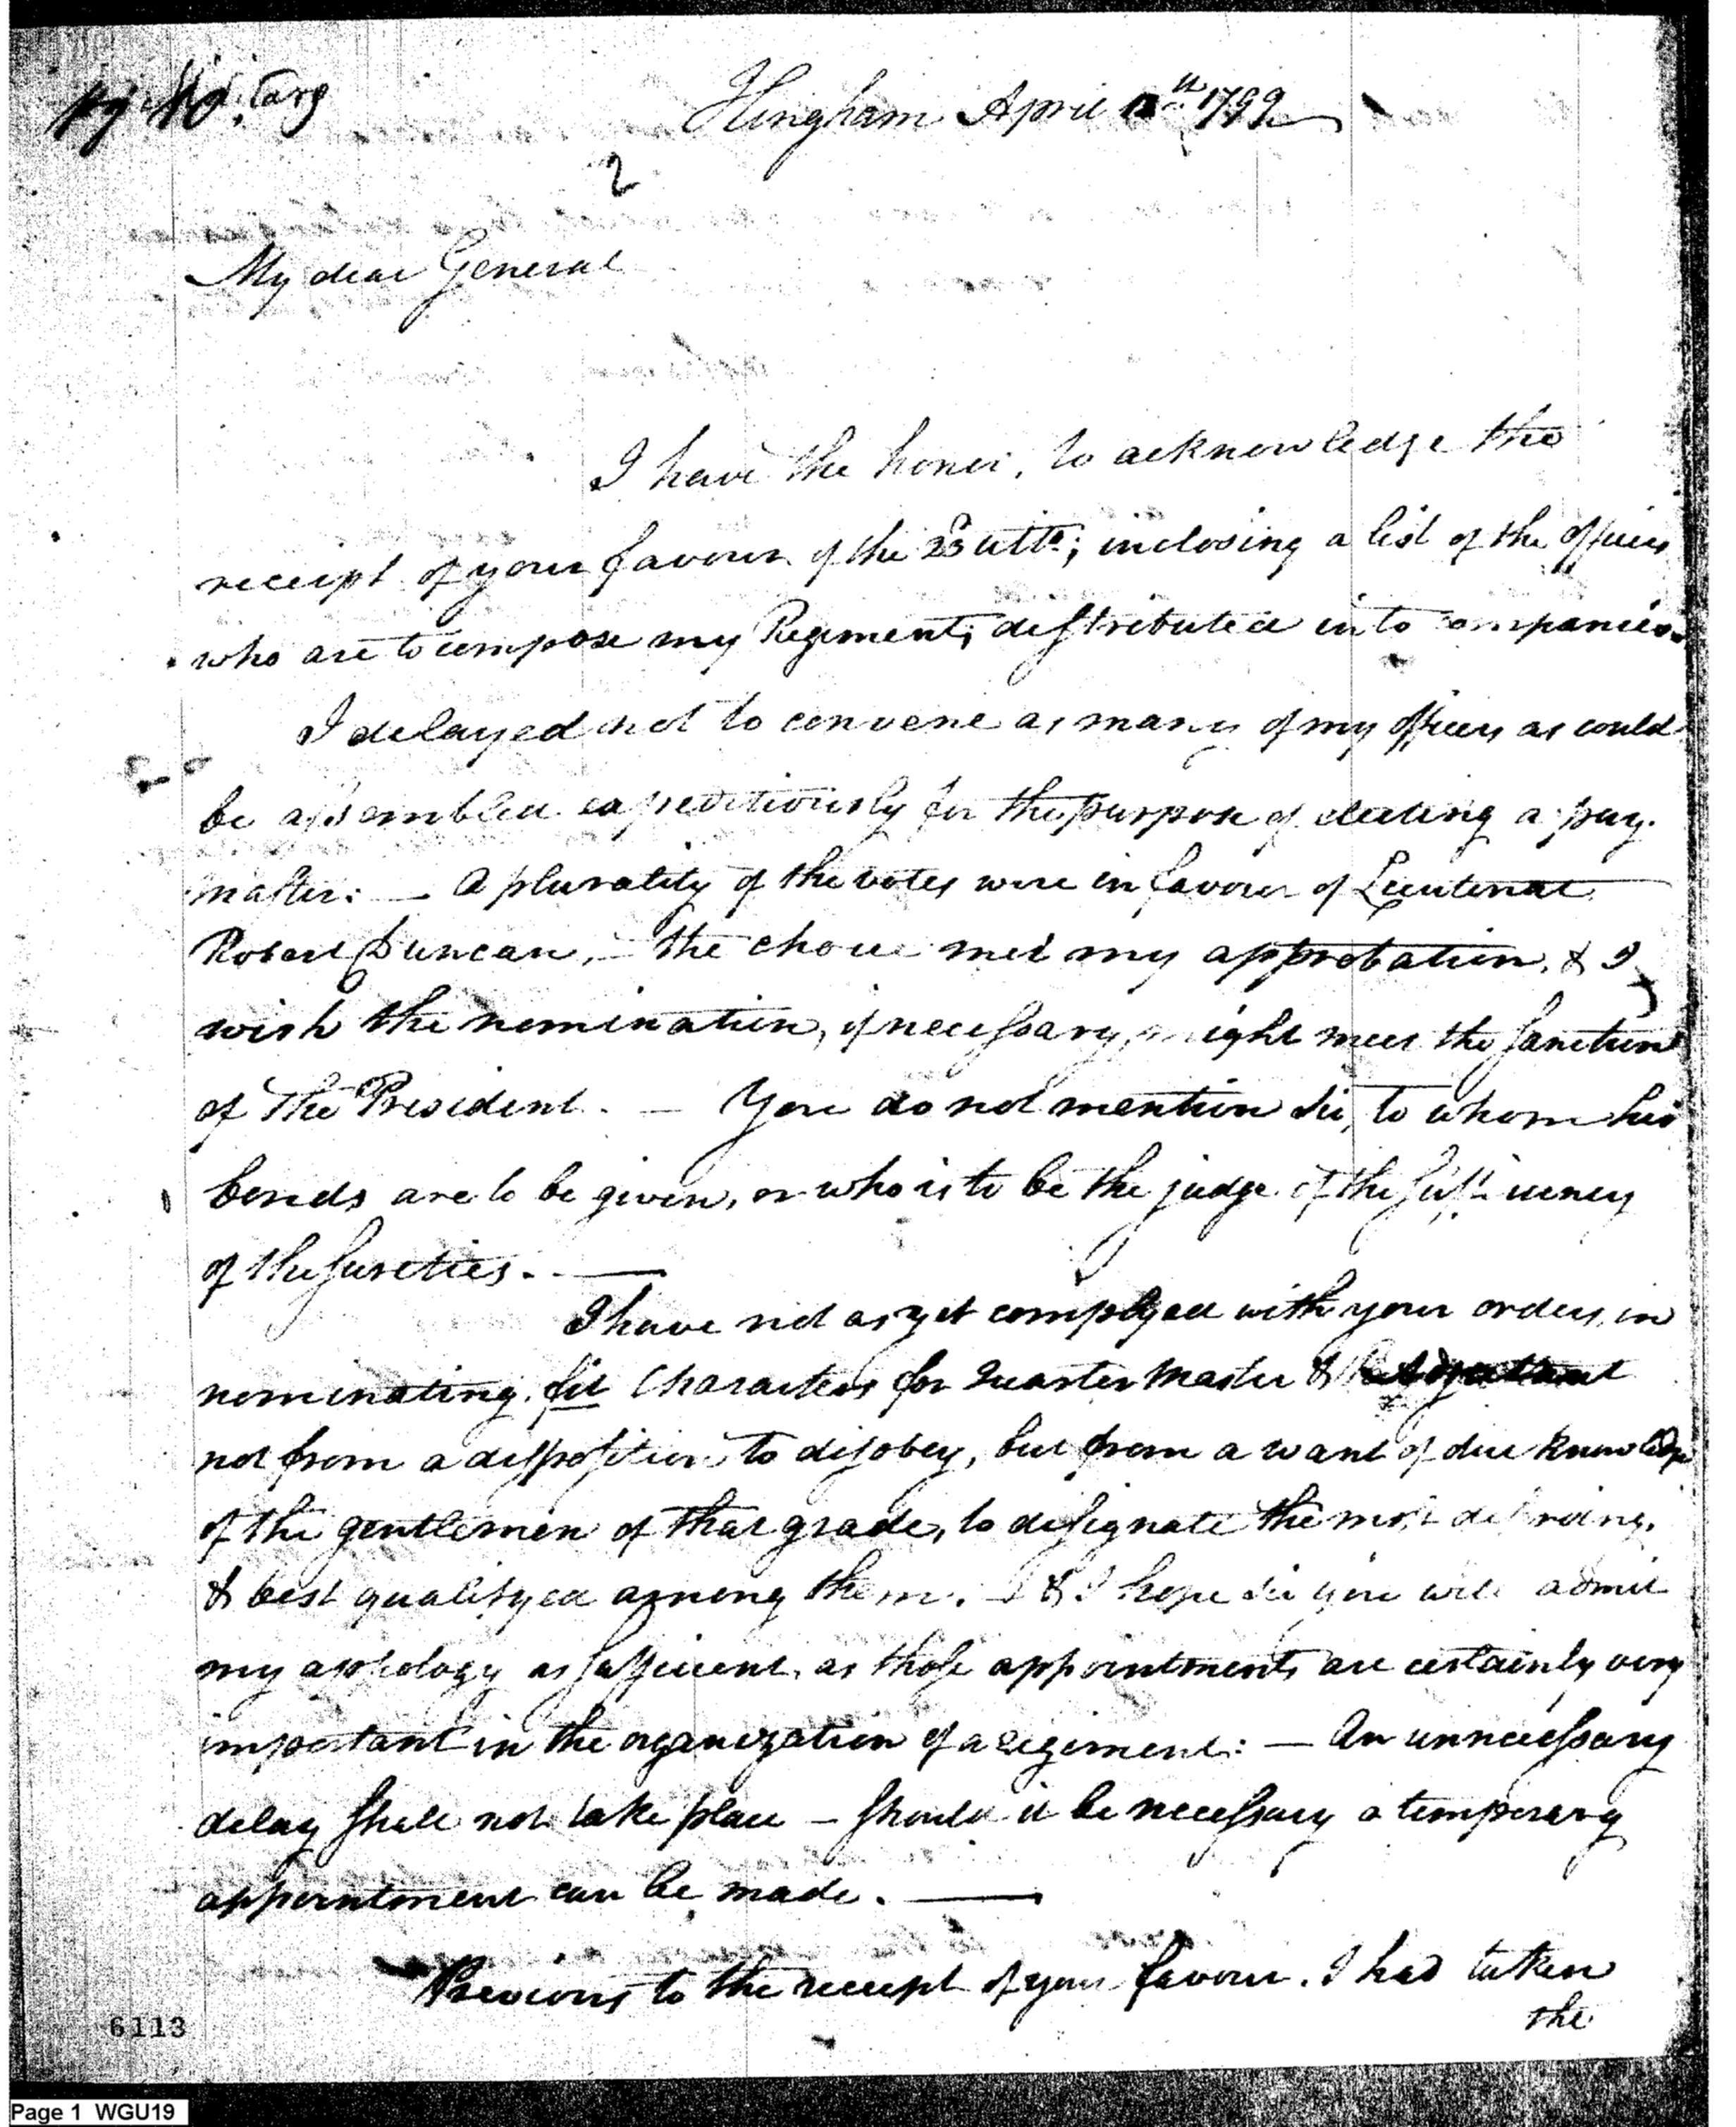 Hingham April 1799
2
My dear General
I have the honor, to acknowledge the
receipt of your favour of the 23 ulto; inclosing a list of the officers
who are to compose my Regiment; distributed into companies.
I delayed not to convene as many of my officers as could
be assembled expeditiously for the purpose of electing a pay-
master: — A plurality of the votes were in favour of Lieutenat
Robert Duncan, — the choice met my approbation, & I
wish the nomination, if necessary, might meet the sanction
of The President. — You do not mention Sir, to whom his
bonds are to be given, or who is to be the judge of the sufficiency
of the sureties. —
I have not as yet complyed with your orders, in
nominating fit Characters for Quarter Master &
not from a disposition to disobey, but from a want of due knowledge
of the gentlemen of that grade, to designate the most deserving,
& best qualifyed among them. — & I hope Sir you will admit
my apology as sufficient, as those appointments are certainly very
important in the organization of a regiment: — An unnecessary
delay shall not take place — should it be necessary a temporary
appointment can be made. —
Previous to the receipt of your favour. I had taken
the
6113
Page 1 WGU19